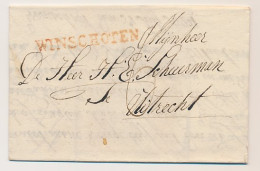 WINSCHOTEN Mijnheer
De Heer H. E. Schuurman
te
Uÿtrecht